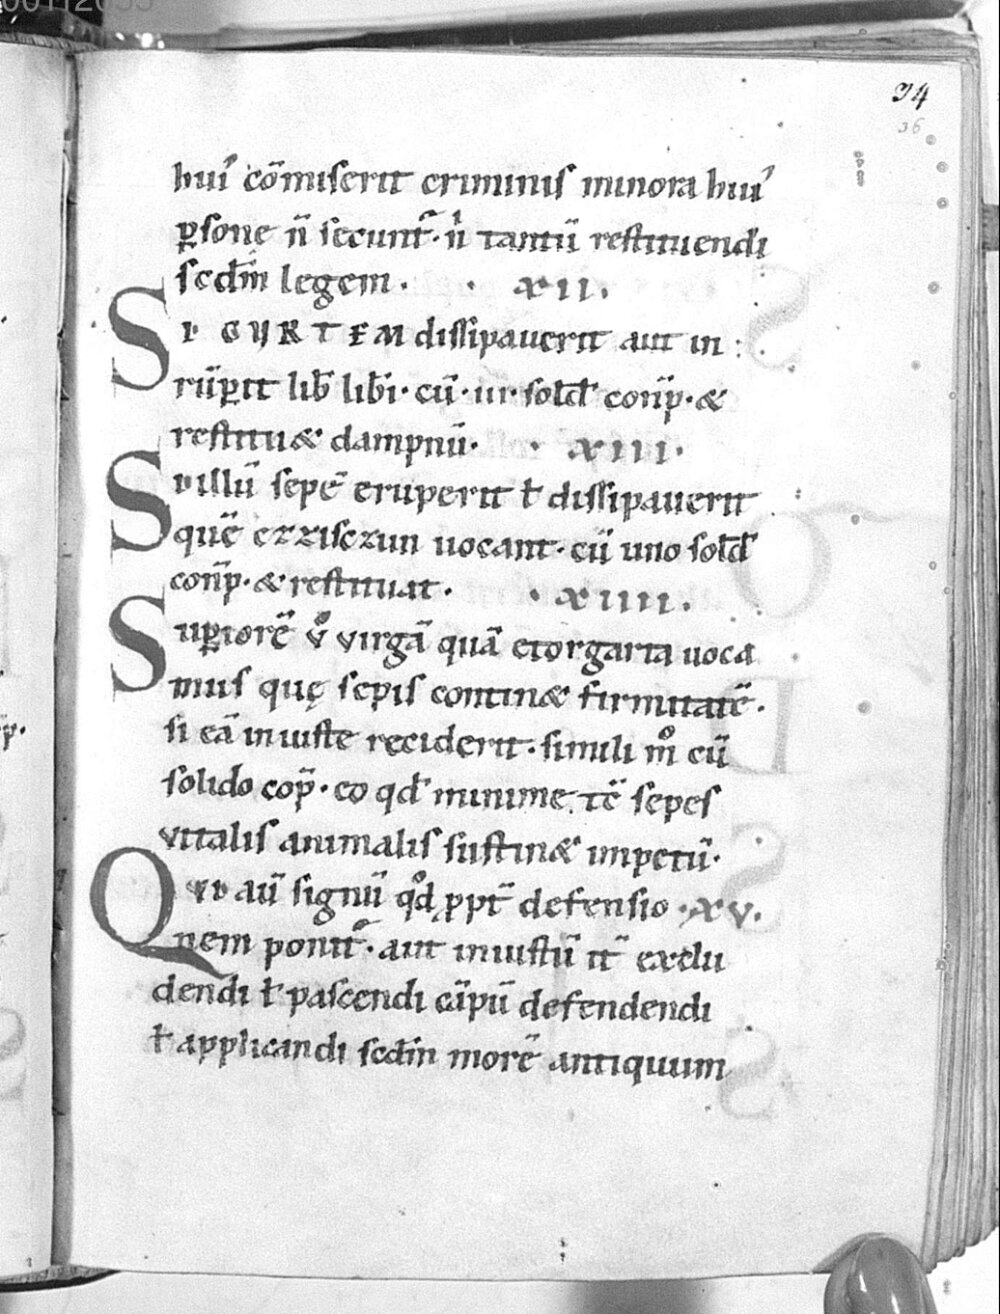 34
36
hui᾽ cōmiserit criminis minora hui᾽
ꝑsone n̄ secunt᷑· n̄ tantū restituendi
scdm̄ legem · · XII.
SI CURTEM dissipauerit aut in
rūꝑit lib̄ libi· cū· III· sold̄ con̄p· &
restitu& dampnū· · XIII·
SI illū sepē eruperit ꝉ dissipauerit
quē ezziszun uocant· cū uno sold̄
con̄p· & restituat· · XIIII.
Suꝑiorē v̊ virgā quā etorgarta uoca
mus quę sepis contin& firmitatē·
si eā iniuste reciderit· simili m̊ cū
solido cop̄· eo qd̄ minime tc̄ sepes
vitalis animalis sustin& impetū·
QVI aū signū qd̊ ꝓpt̄ defensio · XV.
nem ponit᷑· aut iniustū it̄ exclu
dendi ꝉ pascendi cāpū defendendi
ꝉ applicandi scdm̄ morē antiquum